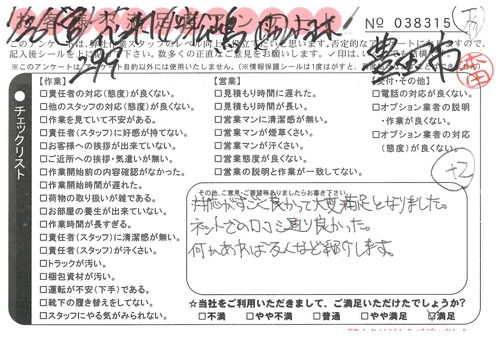 No 038315
【作業】
□責任者の対応(態度)が良くない。
□他のスタッフの対応(態度)が良くない。
□作業を見ていて不安がある。
□責任者(スタッフ)に好感が持てない。
□お客様への挨拶が出来ていない。
□ご近所への挨拶・気遣いが無い。
□作業開始前の内容確認がなかった。
□作業開始時間が遅れた。
□荷物の取り扱いが雑である。
□お部屋の養生が出来ていない。
□作業時間が長すぎる。
□責任者(スタッフ)に清潔感が無い。
□責任者(スタッフ)が汗くさい。
□トラックが汚い。
□梱包資材が汚い。
□運転が不安(下手)である。
□靴下の履き替えをしてない。
□スタッフにやる気がみられない。
【営業】
□見積もり時間に遅れた。
□見積もり時間が長い。
□営業マンに清潔感が無い。
□営業マンが煙草くさい。
□営業マンが汗くさい。
□営業態度が良くない。
□営業の説明と作業が一致してない。
□電話の対応が良くない。
□オプション業者の説明
・作業が良くない。
□オプション業者の対応
(態度)が良くない。
チェックリスト
+2
その他、ご意見・ご要望等ありましたらお書き下さい。
対応がすごく良かって大変満足となりました。
ネットでの口コミ通り良かった。
何かあれば友人など紹介します。
☆当社をご利用いただきまして、ご満足いただけたでしょうか?
□不満 □やや不満 □普通 □やや満足 □満足